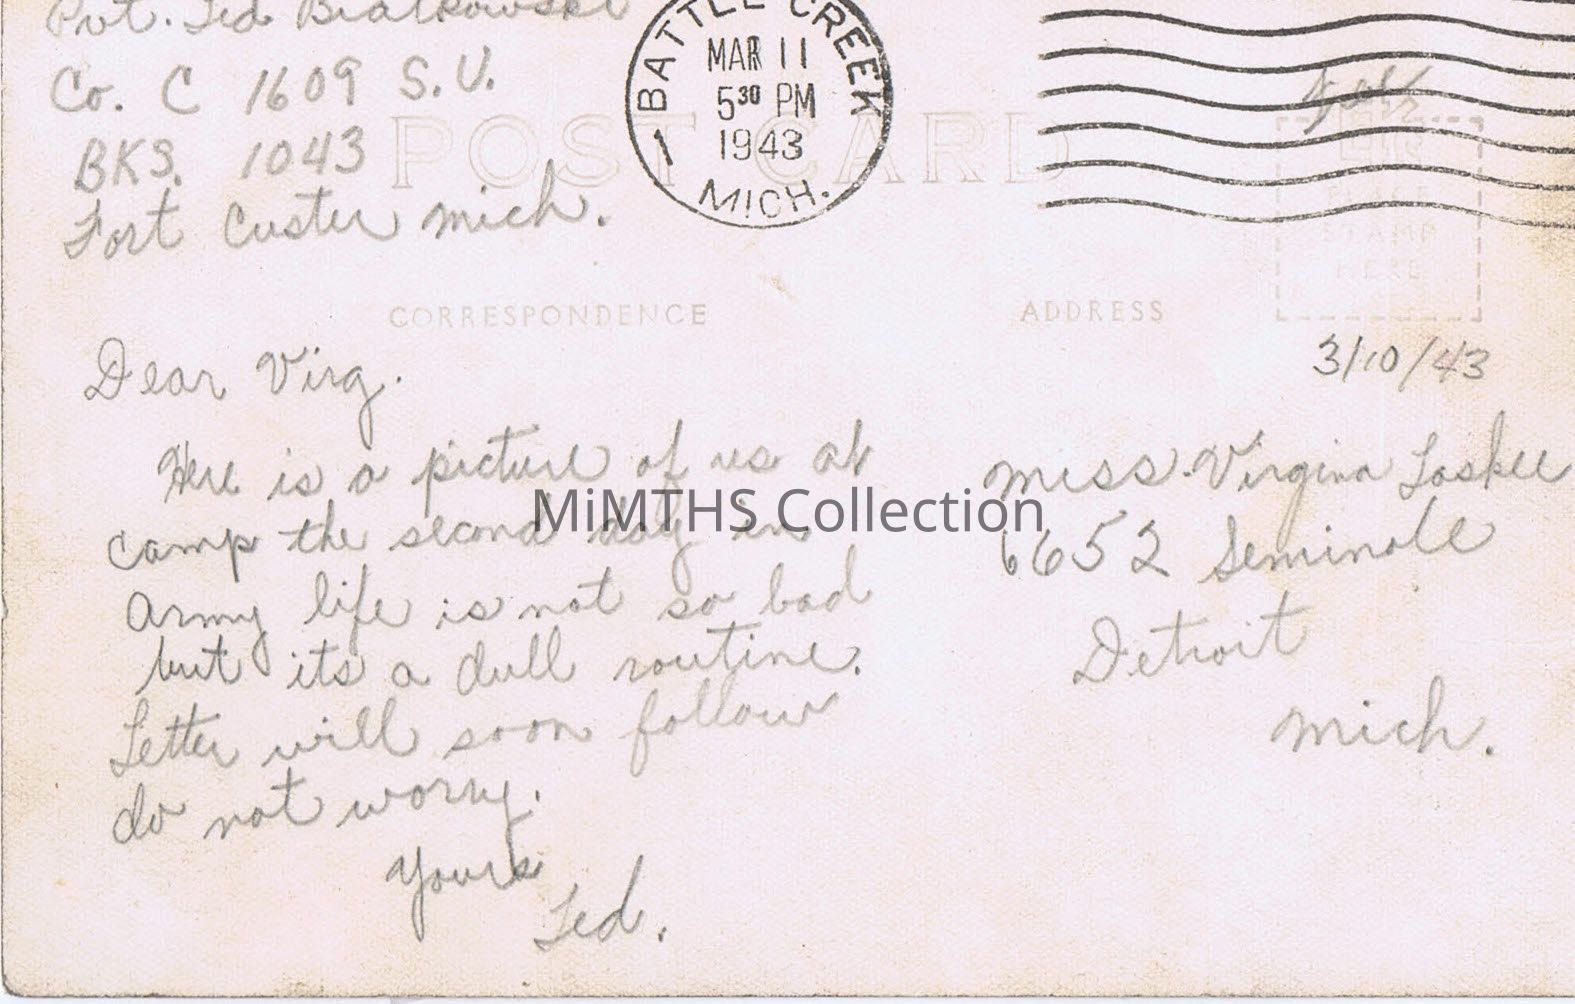 Pvt. Ted Bialkowski
Co. C 1609 S.U.
BKS. 1043
Fort Custer Mich.
BATTLE CREEK
MAR 11
5 30 PM
1943
1
MICH.
POST CARD
PLACE
STAMP
HERE
CORRESPONDENCE
ADDRESS
3/10/43
Dear Virg.
Here is a picture of us at
camp the second day in
Army life is not so bad
but its a dull routine.
Letter will soon follow
do not worry.
Yours
Ted.
Miss. Virginia
6652 Seminole
Detroit
Mich.
MiMTHS Collection